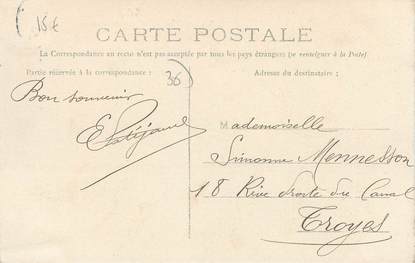 15€
CARTE POSTALE
La Correspondance au recto n'est pas acceptée par tous les pays étrangers (se renseigner à la Poste)
Partie réservée à la correspondance :
36
Adresse du destinataire :
Bon souvenir
Mademoiselle
Simonne Mennesson
18 Rive droite du Canal
Troyes